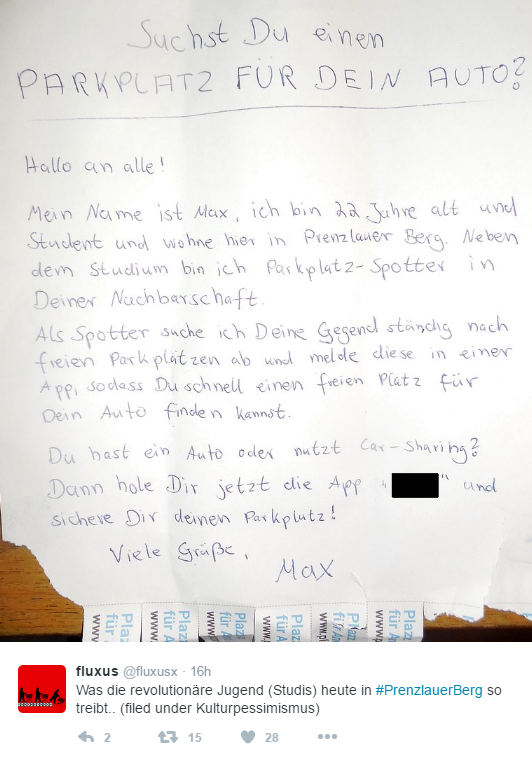 Suchst Du einen
PARKPLATZ FÜR DEIN AUTO?
Hallo an alle!
Mein Name ist Max, ich bin 22 Jahre alt und
Student und wohne hier in Prenzlauer Berg. Neben
dem Studium bin ich Parkplatz-Spotter in
Deiner Nachbarschaft.
Als Spotter suche ich Deine Gegend ständig nach
freien Parkplätzen ab und melde diese in einer
App, sodass Du schnell einen freien Platz für
Dein Auto finden kannst.
Du hast ein Auto oder nutzt Car-Sharing?
Dann hole Dir jetzt die App " " und
sichere Dir deinen Parkplatz!
Viele Grüße,
Max
fluxus @fluxusx · 16h
Was die revolutionäre Jugend (Studis) heute in #PrenzlauerBerg so
treibt.. (filed under Kulturpessimismus)
2 15 28